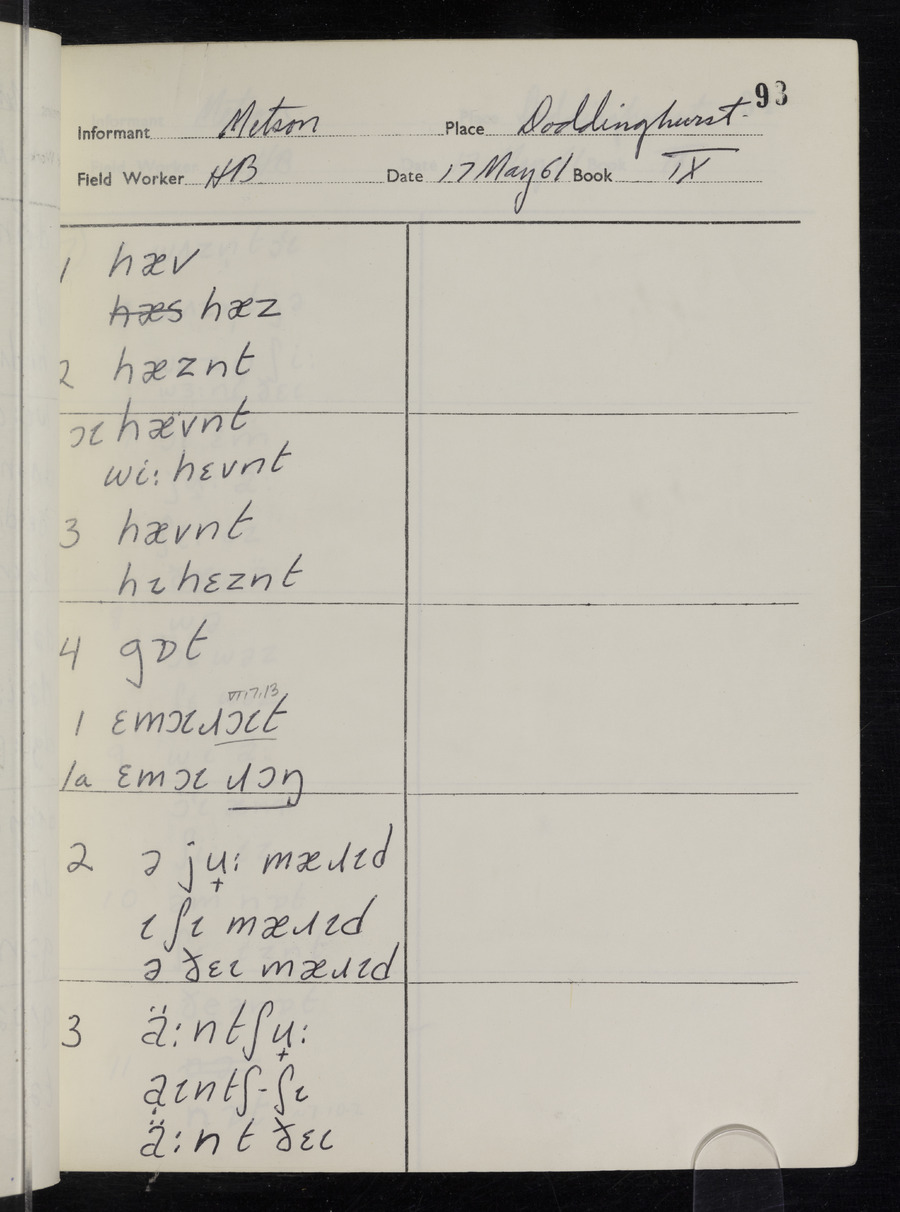 93
Informant Metson Place Doddinghurst.
Field Worker HB Date 17 May 61 Book IX
1 hæv
hæs hæz
2 hæznt
ɔɩ hævnt
wi: hɛvnt
3 hævnt
hɩ hɛznt
4 gɒt
VI.7.13
1 ɛmɔɩɹɔɩt
1a ɛmɔɩ ɹɔŋ
2 ə jʉ̟: mæɹɩd
ɩ ʃɩ mæɹɩd
ə ðɛɩ mæɹɩd
3 ä:ntʃu̟:
aɩntʃ-ʃɩ
ä:nt ðɛɩ